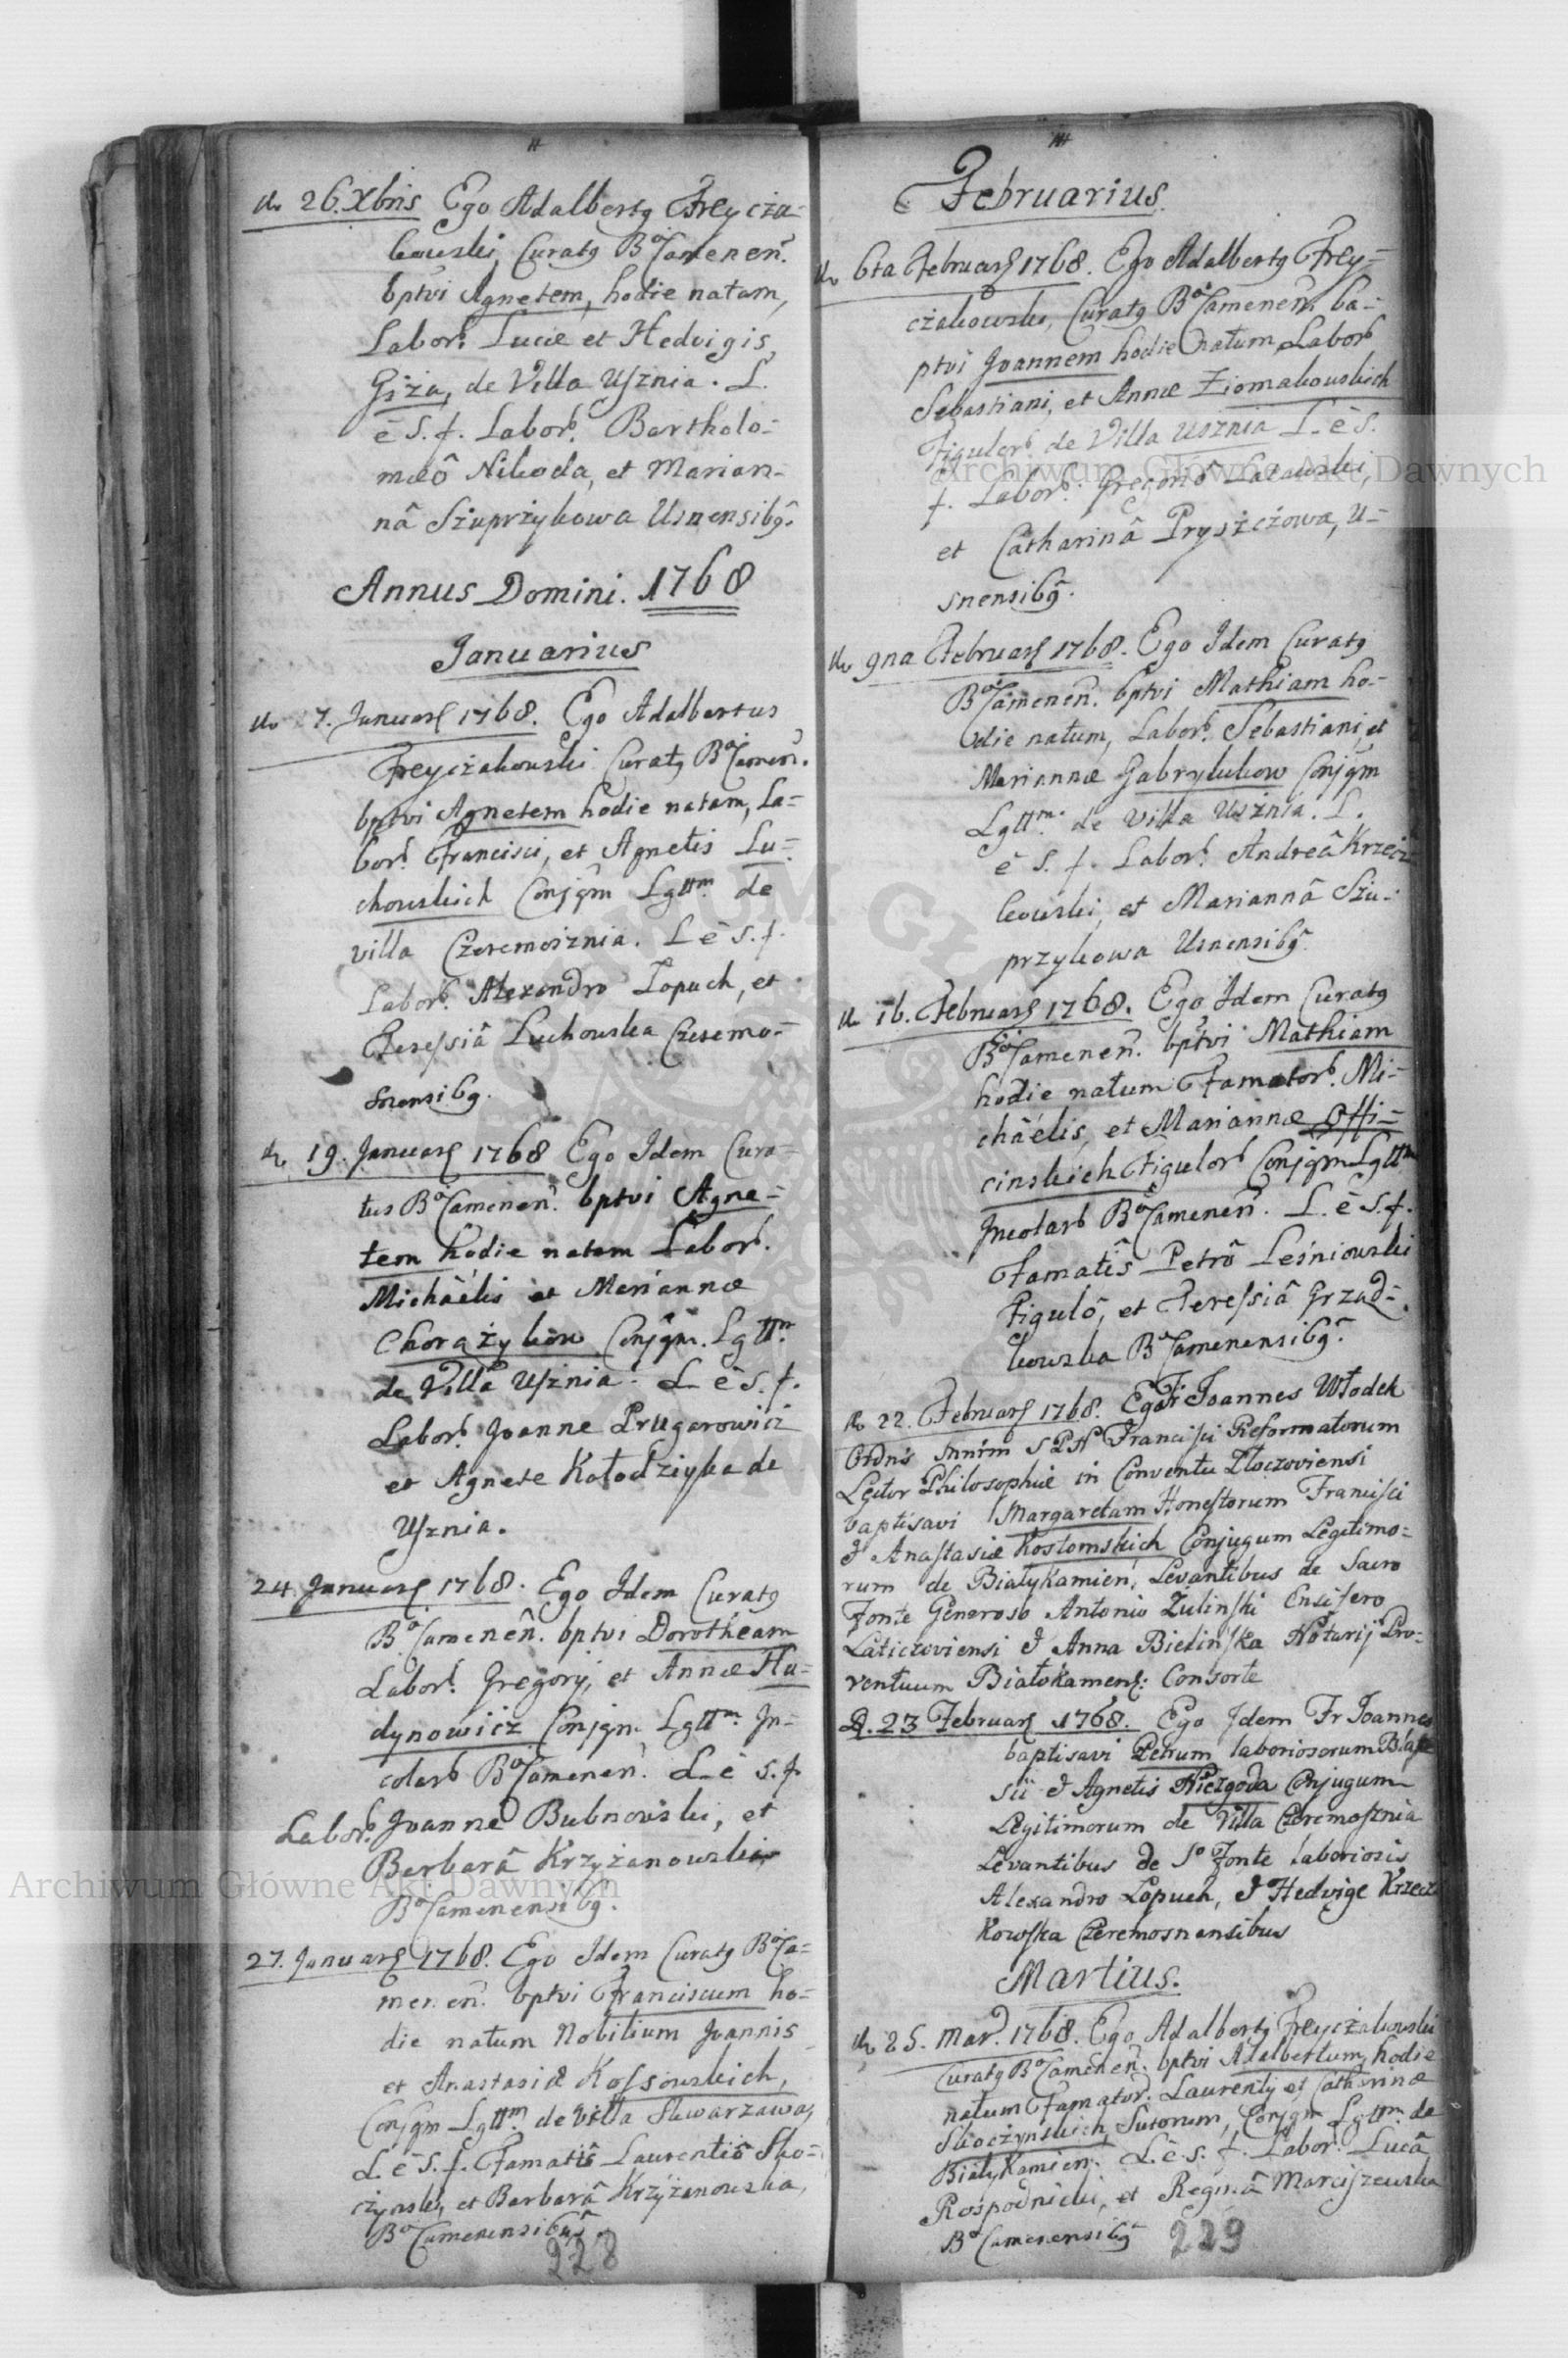 d. 26. Xbris Ego Adalbertg Freycża-
kowski, Curatg B°Camenen.
bptvi Agnetem, hodie natam,
Labor. Lucæ et Hedvigis
Giża, de Villa Usznia. L.
è S. f. Labor. Bartholo-
mæô Nikoda, et Marian-
nâ Sżuprżykowa Usnensibg.
Annus Domini. 1768
Januarius
d. 7. Januarÿ 1768. Ego Adalbertus
Freycżakowski Curatg B°Camen.
bptvi Agnetem hodie natam, La-
bor. Francisci, et Agnetis Lu-
chowskich Conjgm Lgttm. de
villa Czeremosznia. L è S. f.
Labor. Alexandro Łopuch, et
Teressiâ Luchowska Czeremo-
snensibg.
d. 19. Januarÿ 1768 Ego Idem Cura-
tus B°Camenen. bptvi Agne-
tem hodie natam Labor.
Michaëlis et Mariannæ
Chorążykow Conjgm. Lgttm.
de Villa Usznia. L è S. f.
Labor. Joanne Prugarowicz
et Agnete Kołodzieyka de
Usznia.
24. Januarÿ 1768. Ego Idem Curatg
B°Camenen. bptvi Dorotheam
Labor. Gregorÿ, et Annæ Hu-
dynowicz Conjgm. Lgttm. In-
colar. B°Camenen. L è S. f.
Labor. Joanne Bubnowski, et
Barbarâ Krzyżanowska
B°Camenensibg.
27. Januarÿ 1768. Ego Idem Curatg B°Ca-
menen. bptvi Franciscum ho-
die natum Nobilium Joannis
et Anastasiæ Kossowskich,
Conjgm Lgttm. de Villa Skwarzawa,
L è S. f. Famatis Laurentiô Sko-
czynski, et Barbarâ Krzyżanowska,
B°Camenensibus.
228
Februarius
d. 6ta Februarÿ 1768. Ego Adalbertg Frey-
cżakowski, Curatg B°Camenen. ba-
ptvi Joannem hodie natum Labor
Sebastiani, et Annæ Ziomakowskich
Figulor. de Villa Usznia L è S.
f. Labor. Gregoriô
et Catharinâ Pryszczowa, U-
snensibg.
d. 9na Februarÿ 1768. Ego Idem Curatg
B°Camenen. bptvi Mathiam ho-
die natum, Labor. Sebastiani, et
Mariannæ Gabrylukow Conjgm
Lgttm. de Villa Usznia. L.
è S. f. Labor. Andreâ Krzecz-
kowski, et Mariannâ Szu-
przykowa Usnensibg.
d. 16. Februarÿ 1768. Ego Idem Curatg
B°Camenen. bptvi Mathiam
hodie natum Famator. Mi-
chaëlis, et Mariannæ Offi-
cinskich Figulor. Conjgm Lgttm
Incolar. B°Camenen. L. è S. f.
Famatis Petrô Leśniowski
Figulô, et Teressiâ Grzad-
kowska B°Camenensibg.
d. 22. Februarÿ 1768. Ego Fr Joannes Włodek
Ordnis Mnrm S P N Francisci Reformatorum
Lector Philosophiæ in Conventu Złoczoviensi
baptisavi Margaretam Honestorum Francisci
& Anastasiæ Kosłomskich Conjugum Legitimo-
rum de Białykamien, Levantibus de Sacro
Fonte Generoso Antonio Zulinski Ensifero
Laticzoviensi & Anna Bielinska Notarij Pro-
ventuum Białokamens: Consorte
D. 23 Februarÿ 1768. Ego Idem Fr Joannes
baptisavi Petrum laboriosorum Bla-
sii & Agnetis Niezgoda Conjugum
Legitimorum de Villa Czeremosznia
Levantibus de S° Fonte laboriosis
Alexandro Łopuch, & Hedvige Krzecz
kowska Czeremosnensibus
Martius.
d. 25. Mar. 1768. Ego Adalbertg Freycżakowski
Curatg B°Camenen. bptvi Adalbertum, hodie
natum Famator. Laurentÿ et Catharinæ
Skoczynskich, Sutorum, Conjgm Lgttm. de
Białykamien. L. è. S. f. Labor. Lucâ
Rospodnicki, et Reginâ Marciszewska
B°Camenensibg
229
Archiwum Główne Akt Dawnych
Archiwum Główne Akt Dawnych